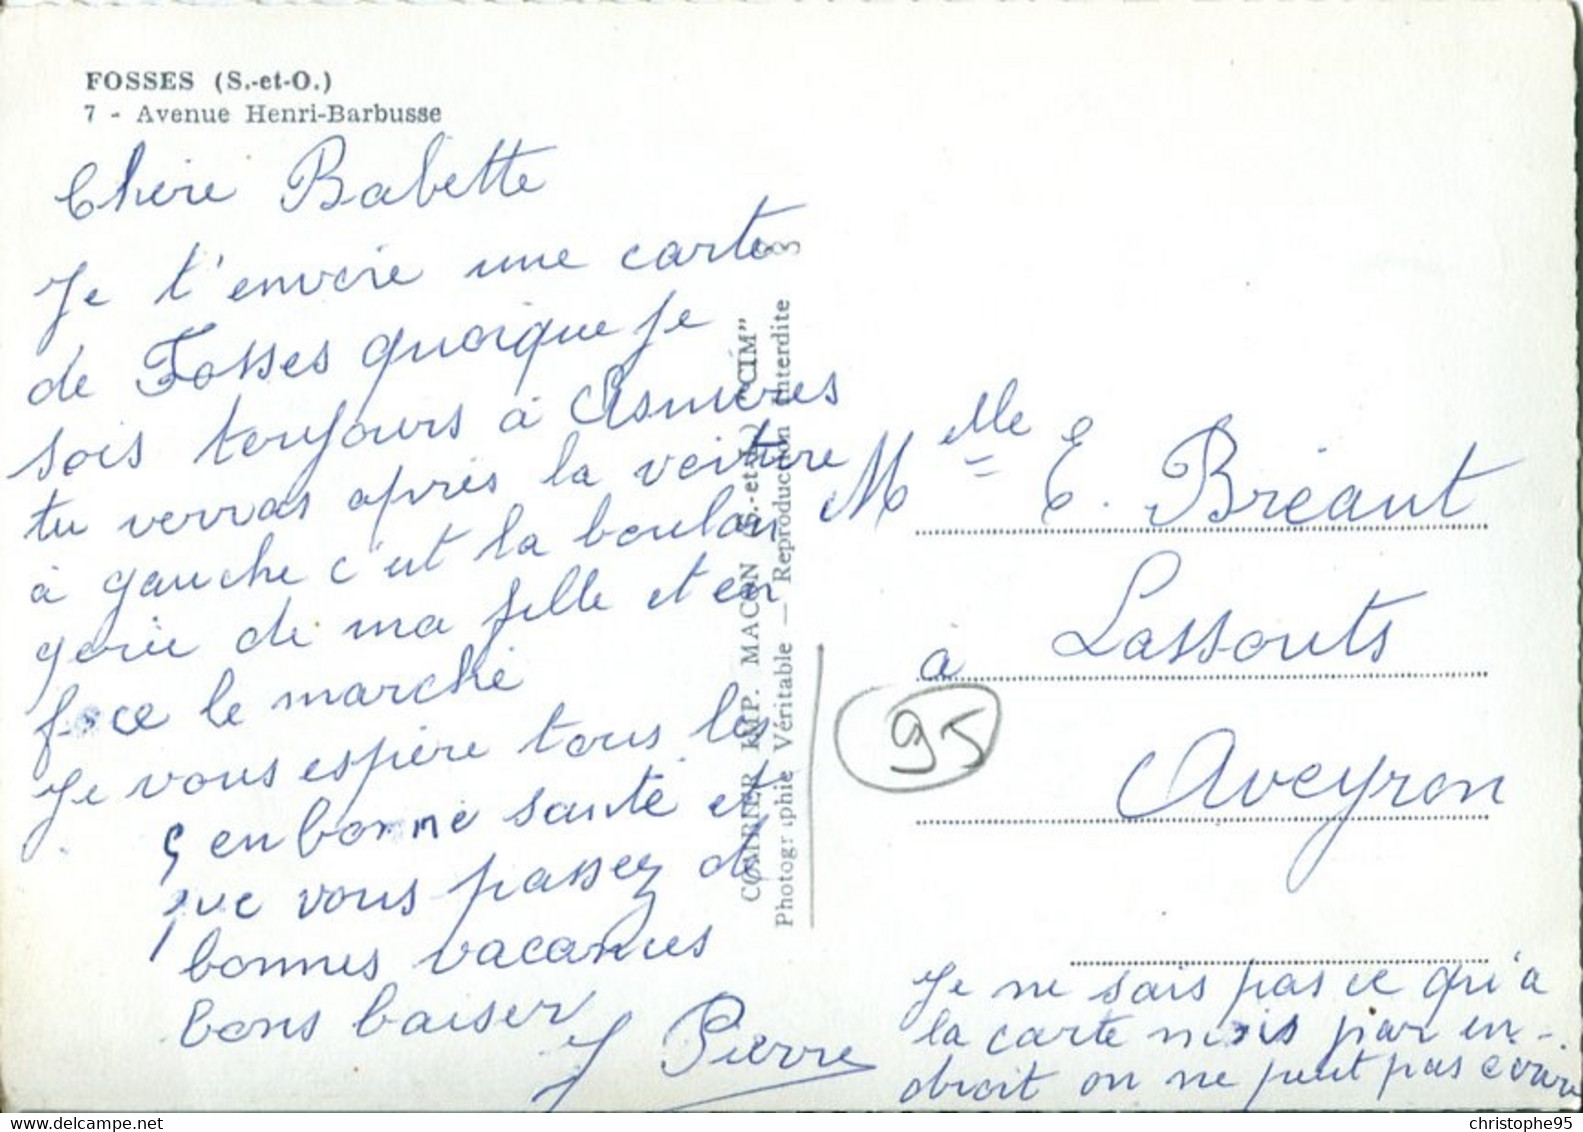 FOSSES (S.-et-O.)
7 - Avenue Henri-Barbusse
Chère Babette
Je t'envoie une carte
de Fosses quoique Je
sois toujours à Asnières
tu verras après la voiture
à gauche c'est la boulan
gerie de ma fille et en
face le marché
Je vous espère tous les
5 en bonne santé et
que vous passez de
bonnes vacances
bons baiser
J Pierre
COMBIER IMP. MACON (S.-et-L.) "CIM"
Photographie Véritable — Reproduction interdite
Mlle E. Bréant
à Lassouts
95
Aveyron
Je ne sais pas ce qu'a
la carte mais par en-
droit on ne peut pas écrire
delcampe.net
christophe95